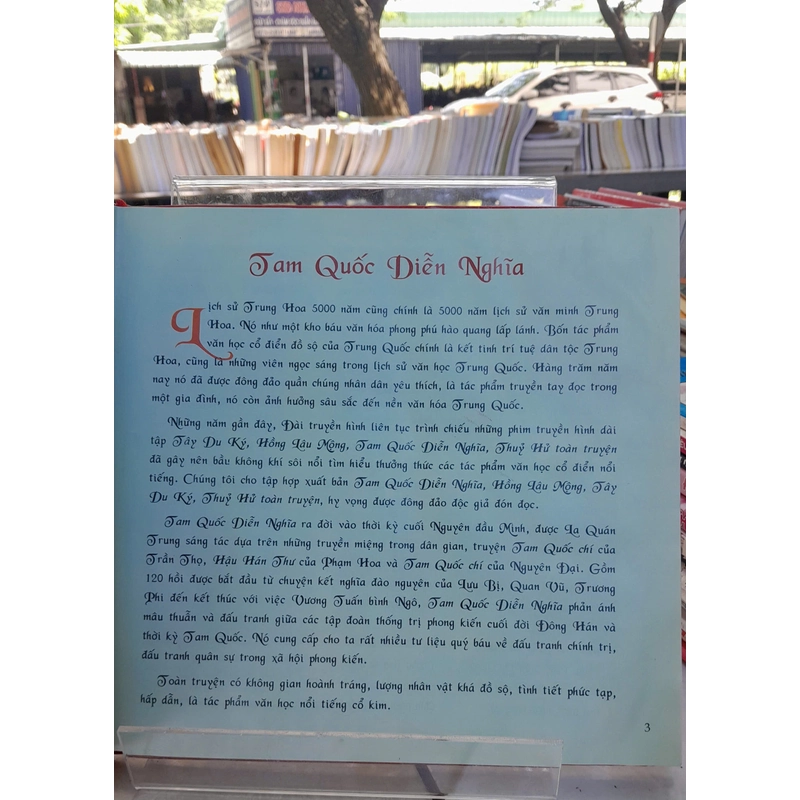 Tam Quốc Diễn Nghĩa
Lịch sử Trung Hoa 5000 năm cũng chính là 5000 năm lịch sử văn minh Trung
Hoa. Nó như một kho báu văn hóa phong phú hào quang lấp lánh. Bốn tác phẩm
văn học cổ điển đồ sộ của Trung Quốc chính là kết tinh trí tuệ dân tộc Trung
Hoa, cũng là những viên ngọc sáng trong lịch sử văn học Trung Quốc. Hàng trăm năm
nay nó đã được đông đảo quần chúng nhân dân yêu thích, là tác phẩm truyền tay đọc trong
một gia đình, nó còn ảnh hưởng sâu sắc đến nền văn hóa Trung Quốc.
Những năm gần đây, Đài truyền hình liên tục trình chiếu những phim truyền hình dài
tập Tây Du Ký, Hồng Lâu Mộng, Tam Quốc Diễn Nghĩa, Thuỷ Hử toàn truyện
đã gây nên bầu không khí sôi nổi tìm hiểu thưởng thức các tác phẩm văn học cổ điển nổi
tiếng. Chúng tôi cho tập hợp xuất bản Tam Quốc Diễn Nghĩa, Hồng Lâu Mộng, Tây
Du Ký, Thuỷ Hử toàn truyện, hy vọng được đông đảo độc giả đón đọc.
Tam Quốc Diễn Nghĩa ra đời vào thời kỳ cuối Nguyên đầu Minh, được La Quán
Trung sáng tác dựa trên những truyền miệng trong dân gian, truyện Tam Quốc chí của
Trần Thọ, Hậu Hán Thư của Phạm Hoa và Tam Quốc chí của Nguyên Đại. Gồm
120 hồi được bắt đầu từ chuyện kết nghĩa đào nguyên của Lưu Bị, Quan Vũ, Trương
Phi đến kết thúc với việc Vương Tuấn bình Ngô, Tam Quốc Diễn Nghĩa phản ánh
mâu thuẫn và đấu tranh giữa các tập đoàn thống trị phong kiến cuối đời Đông Hán và
thời kỳ Tam Quốc. Nó cung cấp cho ta rất nhiều tư liệu quý báu về đấu tranh chính trị,
đấu tranh quân sự trong xã hội phong kiến.
Toàn truyện có không gian hoành tráng, lượng nhân vật khá đồ sộ, tình tiết phức tạp,
hấp dẫn, là tác phẩm văn học nổi tiếng cổ kim.
3